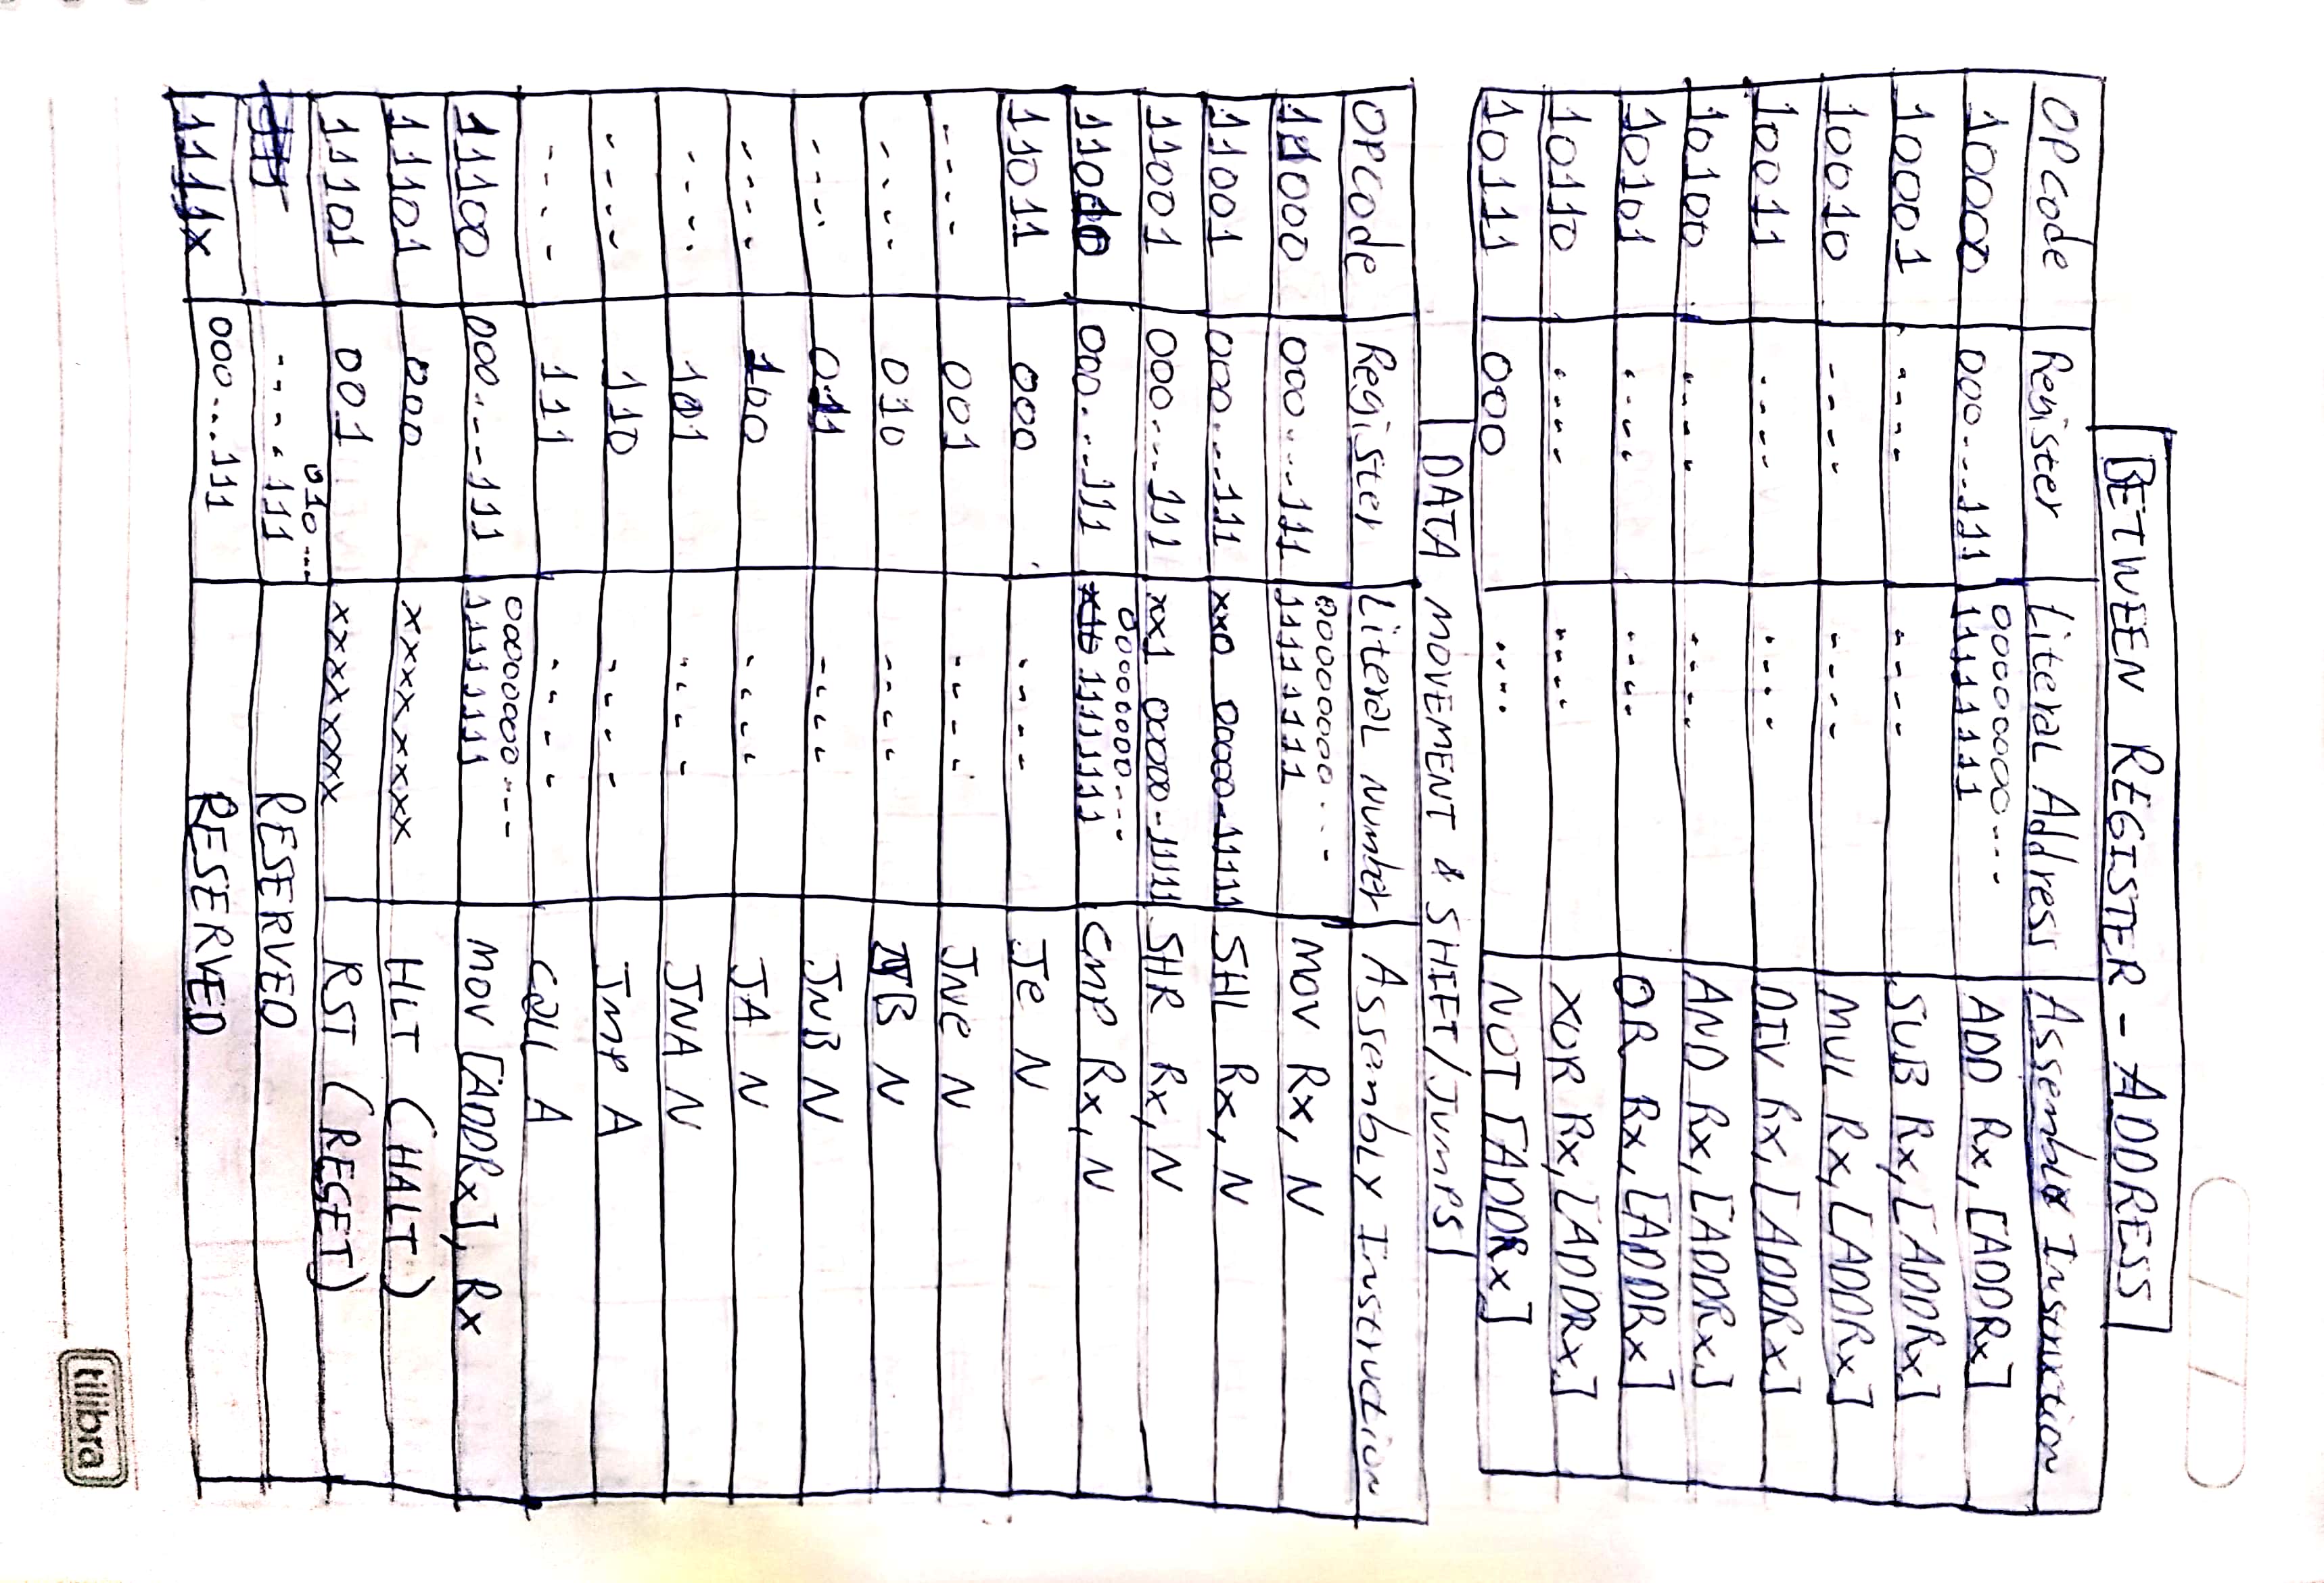 BETWEEN REGISTER - ADDRESS
OPcode Register Literal Address Assembly Instruction
10000 000...111 00000000--- 11111111 ADD Rx, [ADDRx]
10001 ---- ---- SUB Rx, [ADDRx]
10010 ---- ---- MUL Rx, [ADDRx]
10011 ---- ---- DIV Rx, [ADDRx]
10100 ---- ---- AND Rx, [ADDRx]
10101 ---- ---- OR Rx, [ADDRx]
10110 ---- ---- XOR Rx, [ADDRx]
10111 000 ---- NOT [ADDRx]
DATA MOVEMENT & SHIFT/JUMPS
OPcode Register Literal Number Assembly Instruction
11000 000...111 00000000--- 11111111 MOV Rx, N
11001 000...111 xx0 00000-11111 SHL Rx, N
11001 000...111 xx1 00000-11111 SHR Rx, N
11010 000...111 00000000--- 11111111 CMP Rx, N
11011 000 ---- Je N
---- 001 ---- JNe N
---- 010 ---- JB N
---- 011 ---- JNB N
---- 100 ---- JA N
---- 101 ---- JNA N
---- 110 ---- JMP A
---- 111 ---- CALL A
11100 000...111 00000000--- 11111111 MOV [ADDRx], Rx
11101 000 xxxxxxxx HLT (HALT)
11101 001 xxxxxxxx RST (RESET)
010... ----111 RESERVED
1111x 000...111 RESERVED
tilibra